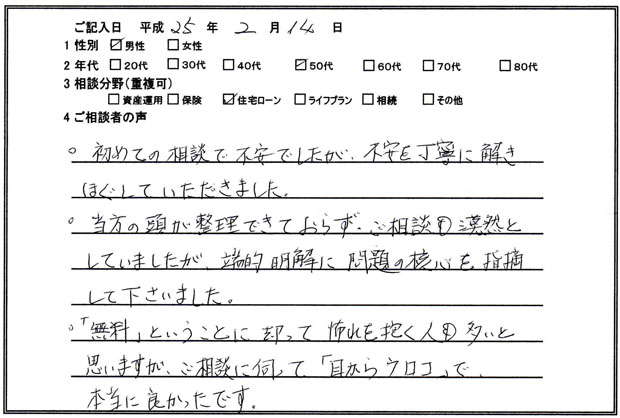 ご記入日 平成 25 年 2 月 14 日
1 性別 ☑男性 □女性
2 年代 □20代 □30代 □40代 ☑50代 □60代 □70代 □80代
3 相談分野(重複可)
□資産運用 □保険 ☑住宅ローン □ライフプラン □相続 □その他
4 ご相談者の声
○ 初めての相談で不安でしたが、不安を丁寧に解き
ほぐしていただきました。
○ 当方の頭が整理できておらず、ご相談も漠然と
していましたが、端的明解に問題の核心を指摘
して下さいました。
○「無料」ということに却って怖れを抱く人も多いと
思いますが、ご相談に伺って、「目からウロコ」で、
本当に良かったです。